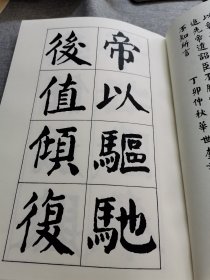 帝以驅馳
後值傾復
追先帝遺詔臣不
不知所言
丁卯仲秋華世